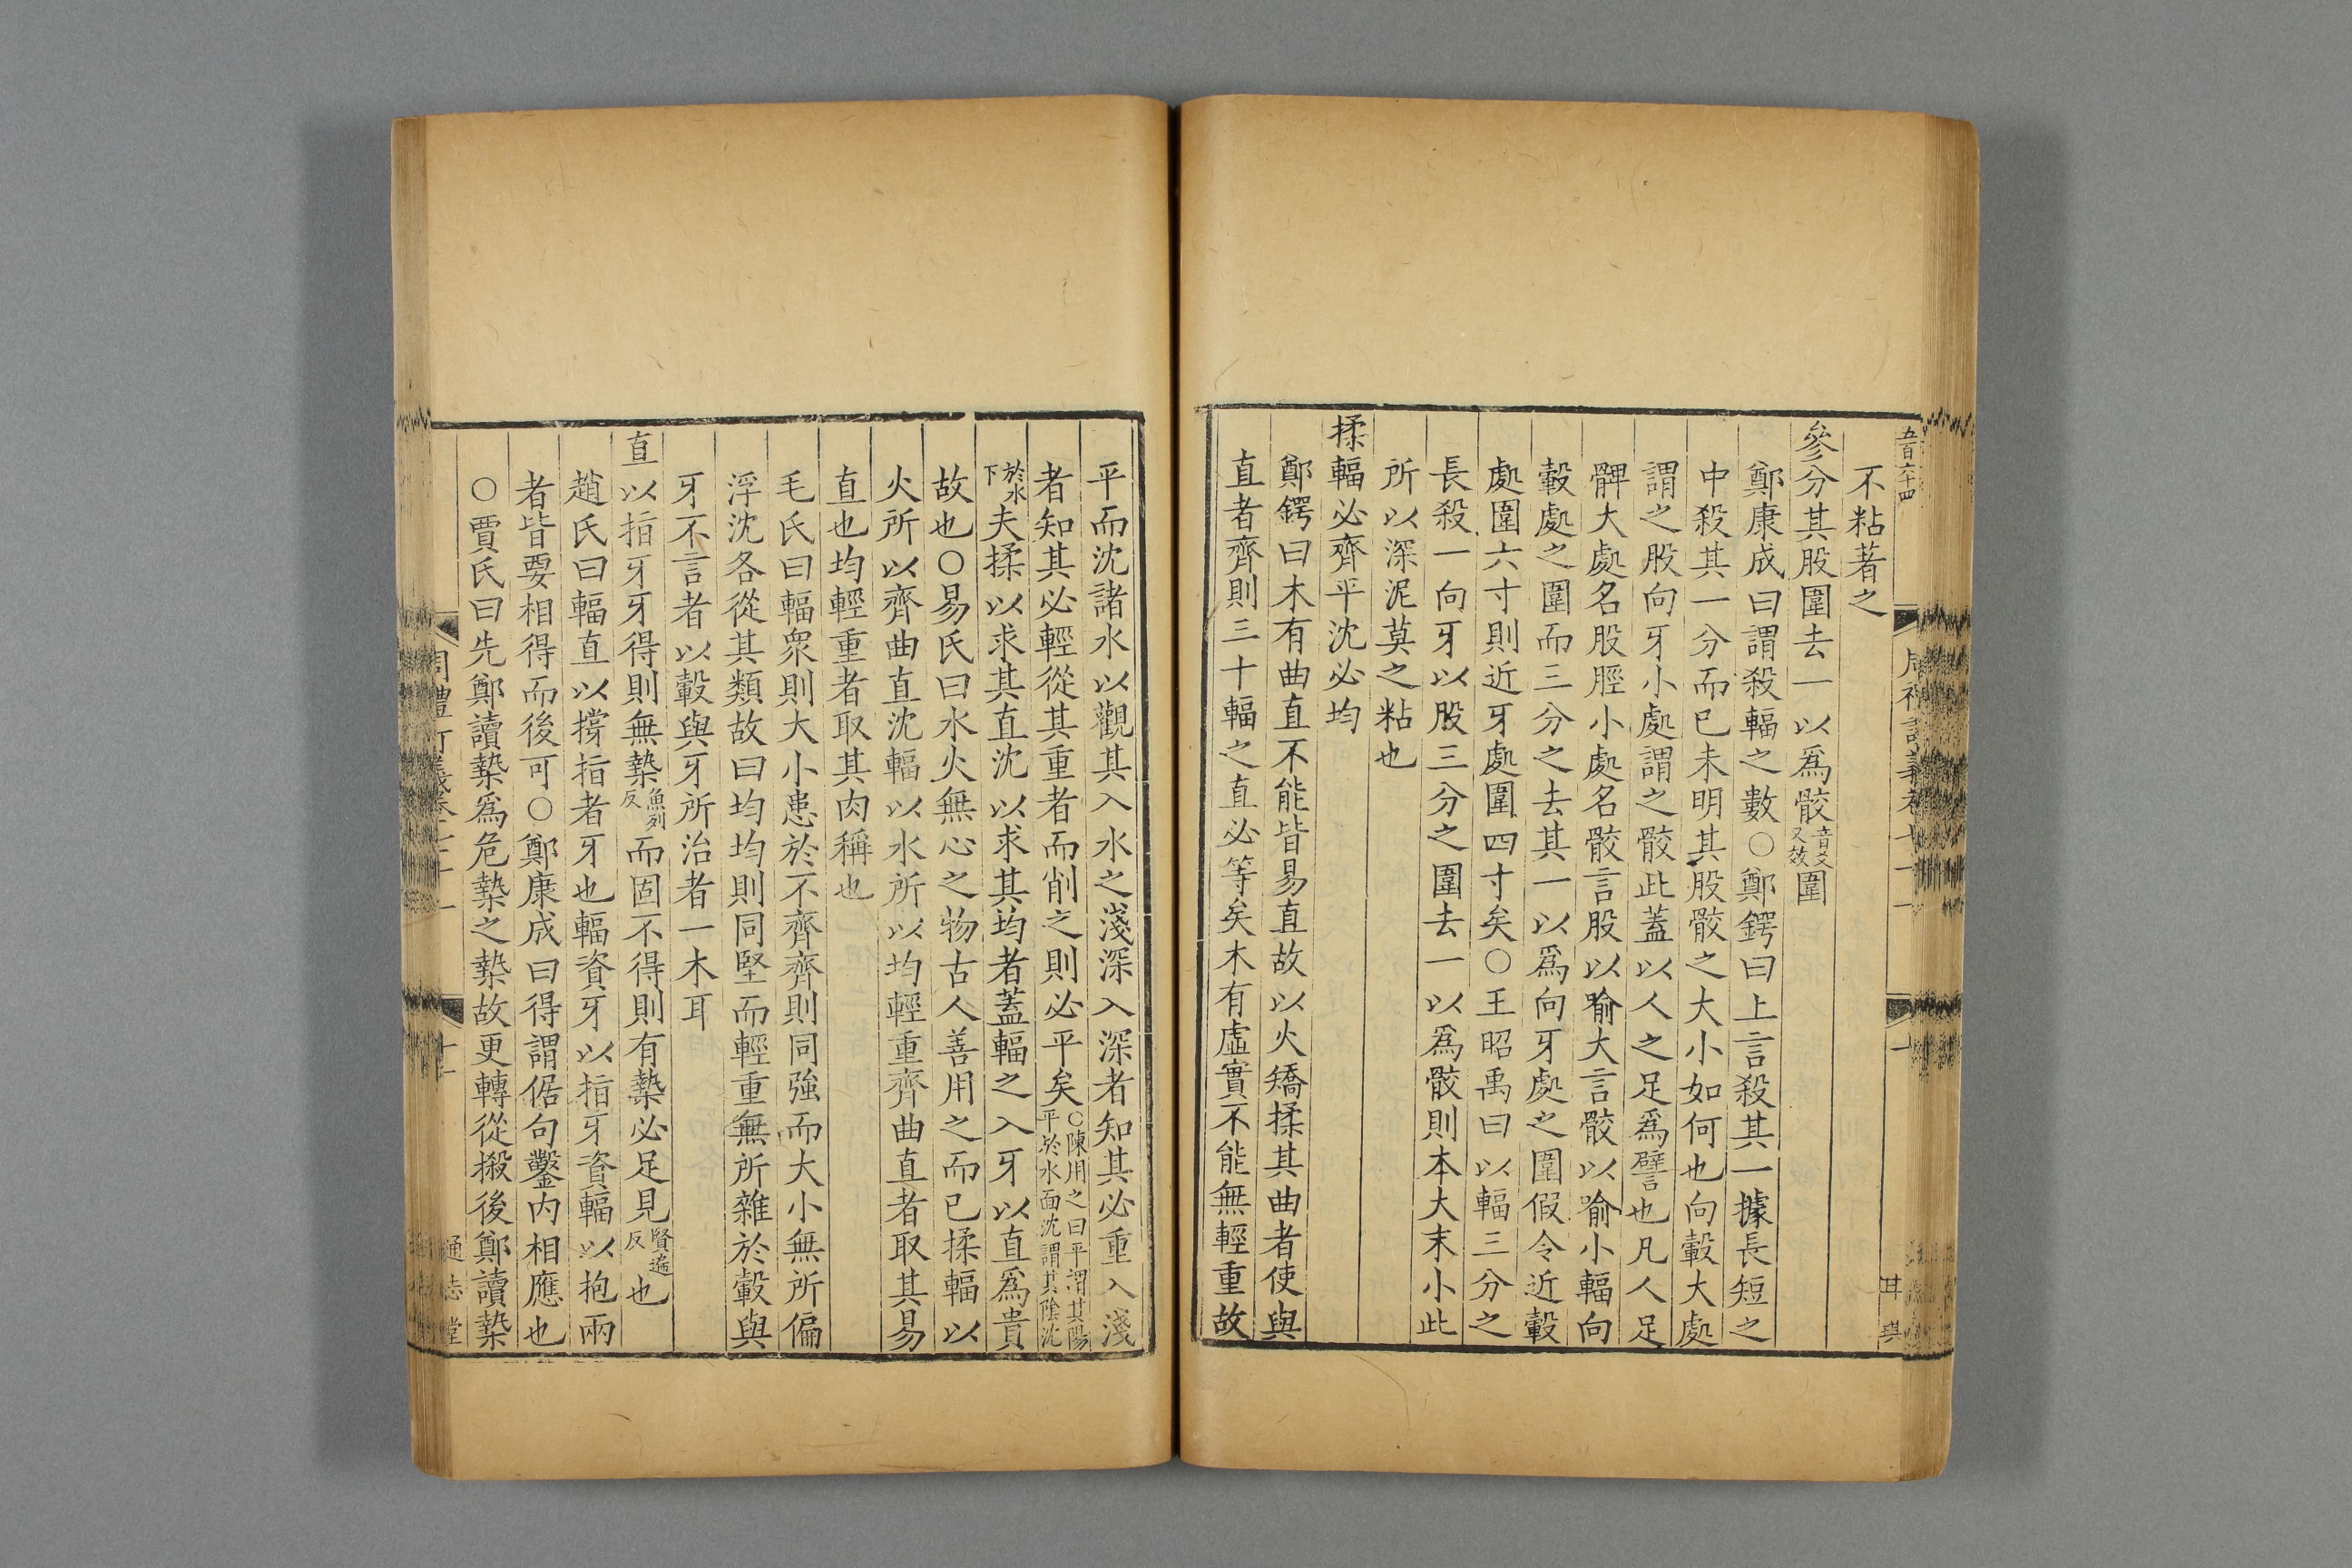 五百六十四
不粘著之
參分其股圍去一以爲骹音爻又效圍
鄭康成曰謂殺輻之數○鄭鍔曰上言殺其一據長短之
中殺其一分而已未明其股骹之大小如何也向轂大處
謂之股向牙小處謂之骹此蓋以人之足爲譬也凡人足
髀大處名股脛小處名骹言股以喻大言骹以喻小輻向
轂處之圍而三分之去其一以爲向牙處之圍假令近轂
處圍六寸則近牙處圍四寸矣○王昭禹曰以輻三分之
長殺一向牙以股三分之圍去一以爲骹則本大末小此
所以深泥莫之粘也
揉輻必齊平沈必均
鄭鍔曰木有曲直不能皆易直故以火矯揉其曲者使與
直者齊則三十輻之直必等矣木有虛實不能無輕重故
平而沈諸水以觀其入水之淺深入深者知其必重入淺
者知其必輕從其重者而削之則必平矣○陳用之曰平謂其陽平於水面沈謂其陰沈
於水下夫揉以求其直沈以求其均者蓋輻之入牙以直爲貴
故也○易氏曰水火無心之物古人善用之而已揉輻以
火所以齊曲直沈輻以水所以均輕重齊曲直者取其易
直也均輕重者取其肉稱也
毛氏曰輻衆則大小患於不齊齊則同強而大小無所偏
浮沈各從其類故曰均均則同堅而輕重無所雜於轂與
牙不言者以轂與牙所治者一木耳
直以指牙牙得則無槷魚列反而固不得則有槷必足見賢遍反也
趙氏曰輻直以撐指者牙也輻資牙以指牙資輻以抱兩
者皆要相得而後可○鄭康成曰得謂倨句鑿内相應也
○賈氏曰先鄭讀槷爲危槷之槷故更轉從摋後鄭讀槷
通志堂